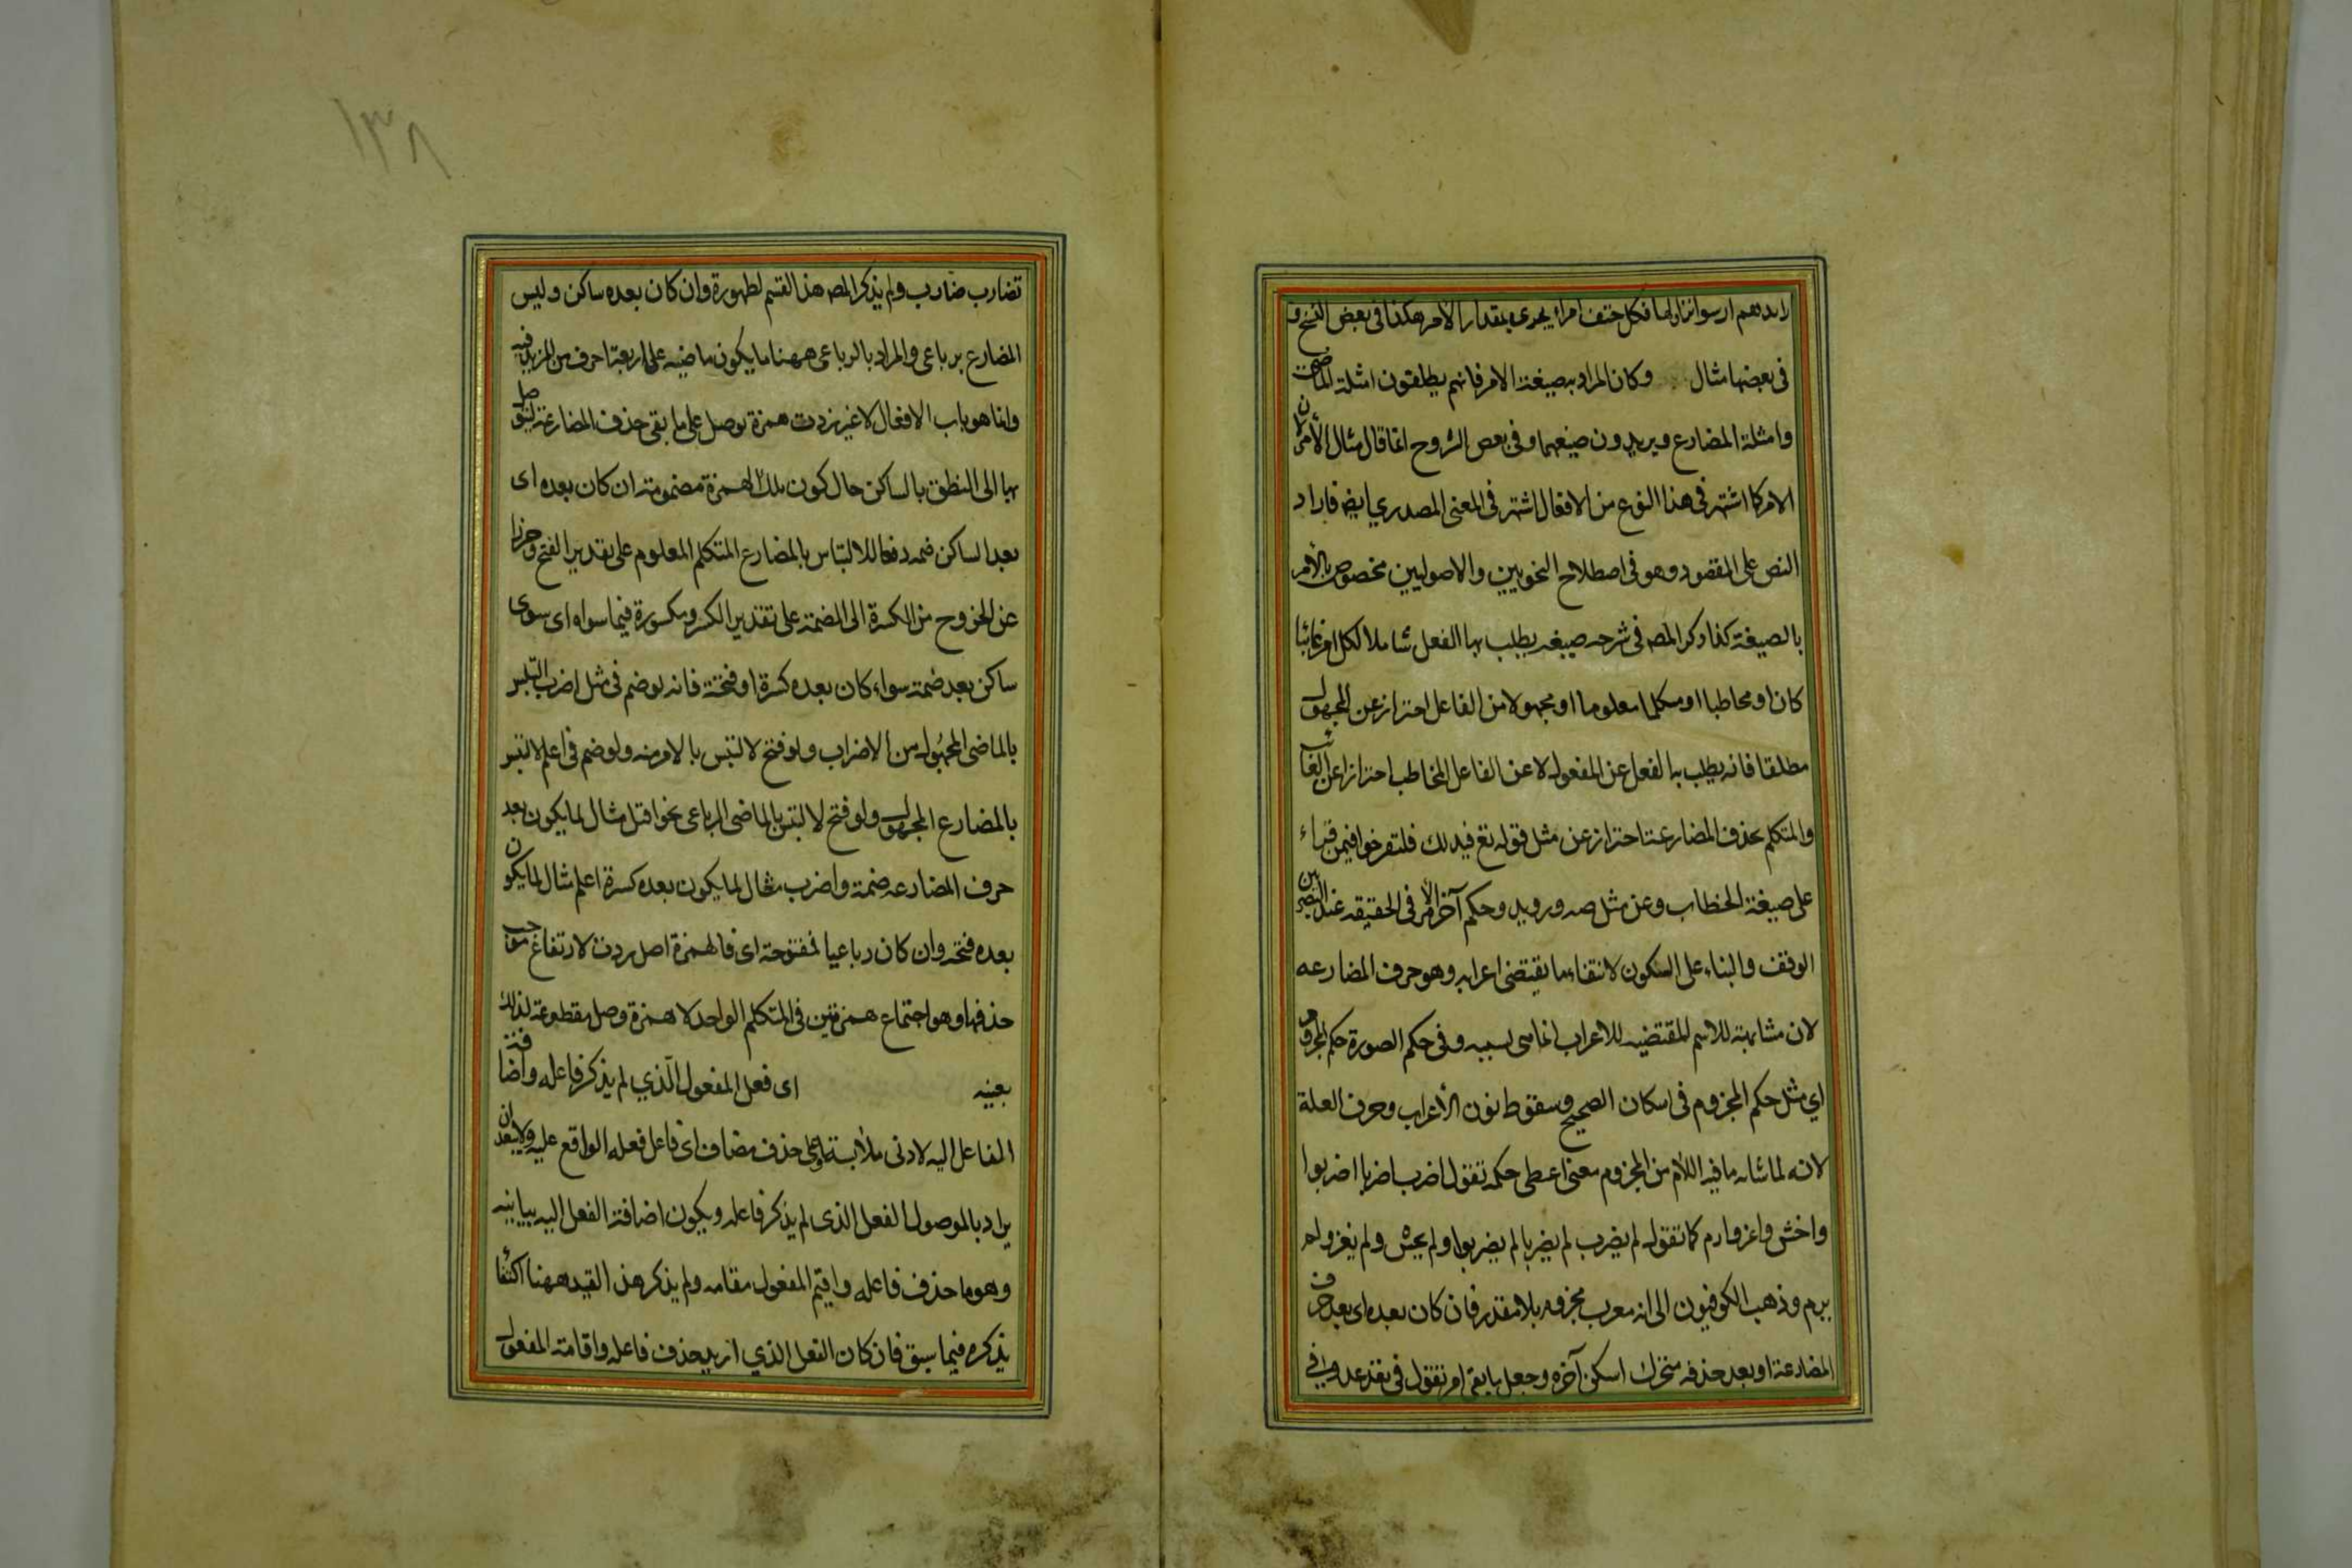 رايدهم ارسوا نزاولها فكل حتف امرء يجرى بمقدار الامر هكذا فى بعض النسخ و
فى بعضها مثال وكان المراد بصيغة الامر فانهم يطلقون امثلة الماضى
وامثلة المضارع ويريدون صيغهما وفى بعض الشروح انما قال مثال الأمر لان
الامر كما اشتهر فى هذا النوع من الافعال اشتهر فى المعنى المصدري ايض فاراد
النص على المقصود وهو فى اصطلاح النحويين والاصوليين مخصوص بالأمر
بالصيغة كذا ذكر المص فى شرحه صيغه يطلب بها الفعل شاملا لكل امر غائبا
كان او مخاطبا او متكلما معلوما او مجهولا من الفاعل احتراز عن المجهول
مطلقا فانه يطلب به الفعل عن المفعول لا عن الفاعل المخاطب احترازا عن الغائب
والمتكلم بحذف المضارعة احتراز عن مثل قوله تع فبذلك فلتفرحوا فيمن قراء
على صيغة الخطاب وعن مثل صه ورويد وحكم آخر الامر فى الحقيقه عند البصريين
الوقف والبناء على السكون لانتفاء ما يقتضى اعرابه وهو حرف المضارعه
لان مشابهته للاسم المقتضيه للاعراب انما هى بسببه وفى حكم الصورة حكم المجزوم
اي مثل حكم المجزوم فى اسكان الصحيح وسقوط نون الأعراب وحرف العلة
لانه لما شابه ما فيه اللام من المجزوم معنى اعطى حكمه تقول اضرب اضربا اضربوا
واخش واغز وارم كما تقول لم يضرب لم يضربا لم يضربوا ولم يخش ولم يغز ولم
يرم وذهب الكوفيون الى انه معرب مجزوم بلام مقدر فان كان بعده اى بعد حرف
المضارعة او بعد حذفه متحرك اسكن آخره وجعل ما بقى امر تقول فى تعد عد وفى
١٣٨
تضارب ضارب ولم يذكر المص هذا القسم لظهورة وان كان بعده ساكن وليس
المضارع برباعى والمراد بالرباعى ههنا ما يكون ماضيه على اربعة احرف من المزيد فيه
وانما هو باب الافعال لا غير زدت همزة توصل على ما بقى حذف المضارعة ليتوصل
بها الى النطق بالساكن حال كون تلك الهمزة مضمومة ان كان بعده اى
بعد الساكن ضمه دفعا للالتباس بالمضارع المتكلم المعلوم على تقدير الفتح وحرزا
عن الخروج من الكسرة الى الضمة على تقدير الكسر ومكسورة فيما سواه اى سوى
ساكن بعد ضمة سواء كان بعده كسرة او فتحة فانه لو ضم فى مثل اضرب التبس
بالماضى المجهول من الاضراب ولو فتح لالتبس بالامر منه ولو ضم فى اعلم لالتبس
بالمضارع المجهول ولو فتح لالتبس بالماضى الرباعى نحو اقتل مثال لما يكون بعد
حرف المضارعه ضمة واضرب مثال لما يكون بعده كسرة اعلم مثال لما يكون
بعده فتحه وان كان رباعيا فمفتوحة اى فالهمزة اصل ردت لارتفاع موجب
حذفها وهو اجتماع همزتين فى المتكلم الواحد لا همزة وصل مقطوعة لذلك
بعينه اى فعل المفعول الّذي لم يذكر فاعله واضافة
الفاعل اليه لادنى ملابسة او على حذف مضاف اى فاعل فعله الواقع عليه ولا يبعد ان
يراد بالموصول الفعل الذى لم يذكر فاعله ويكون اضافة الفعل اليه بيانيه
وهو ما حذف فاعله واقيم المفعول مقامه ولم يذكر هذا القيد ههنا اكتفأ
بذكره فيما سبق فان كان الفعل الذي اريد حذف فاعله واقامة المفعول